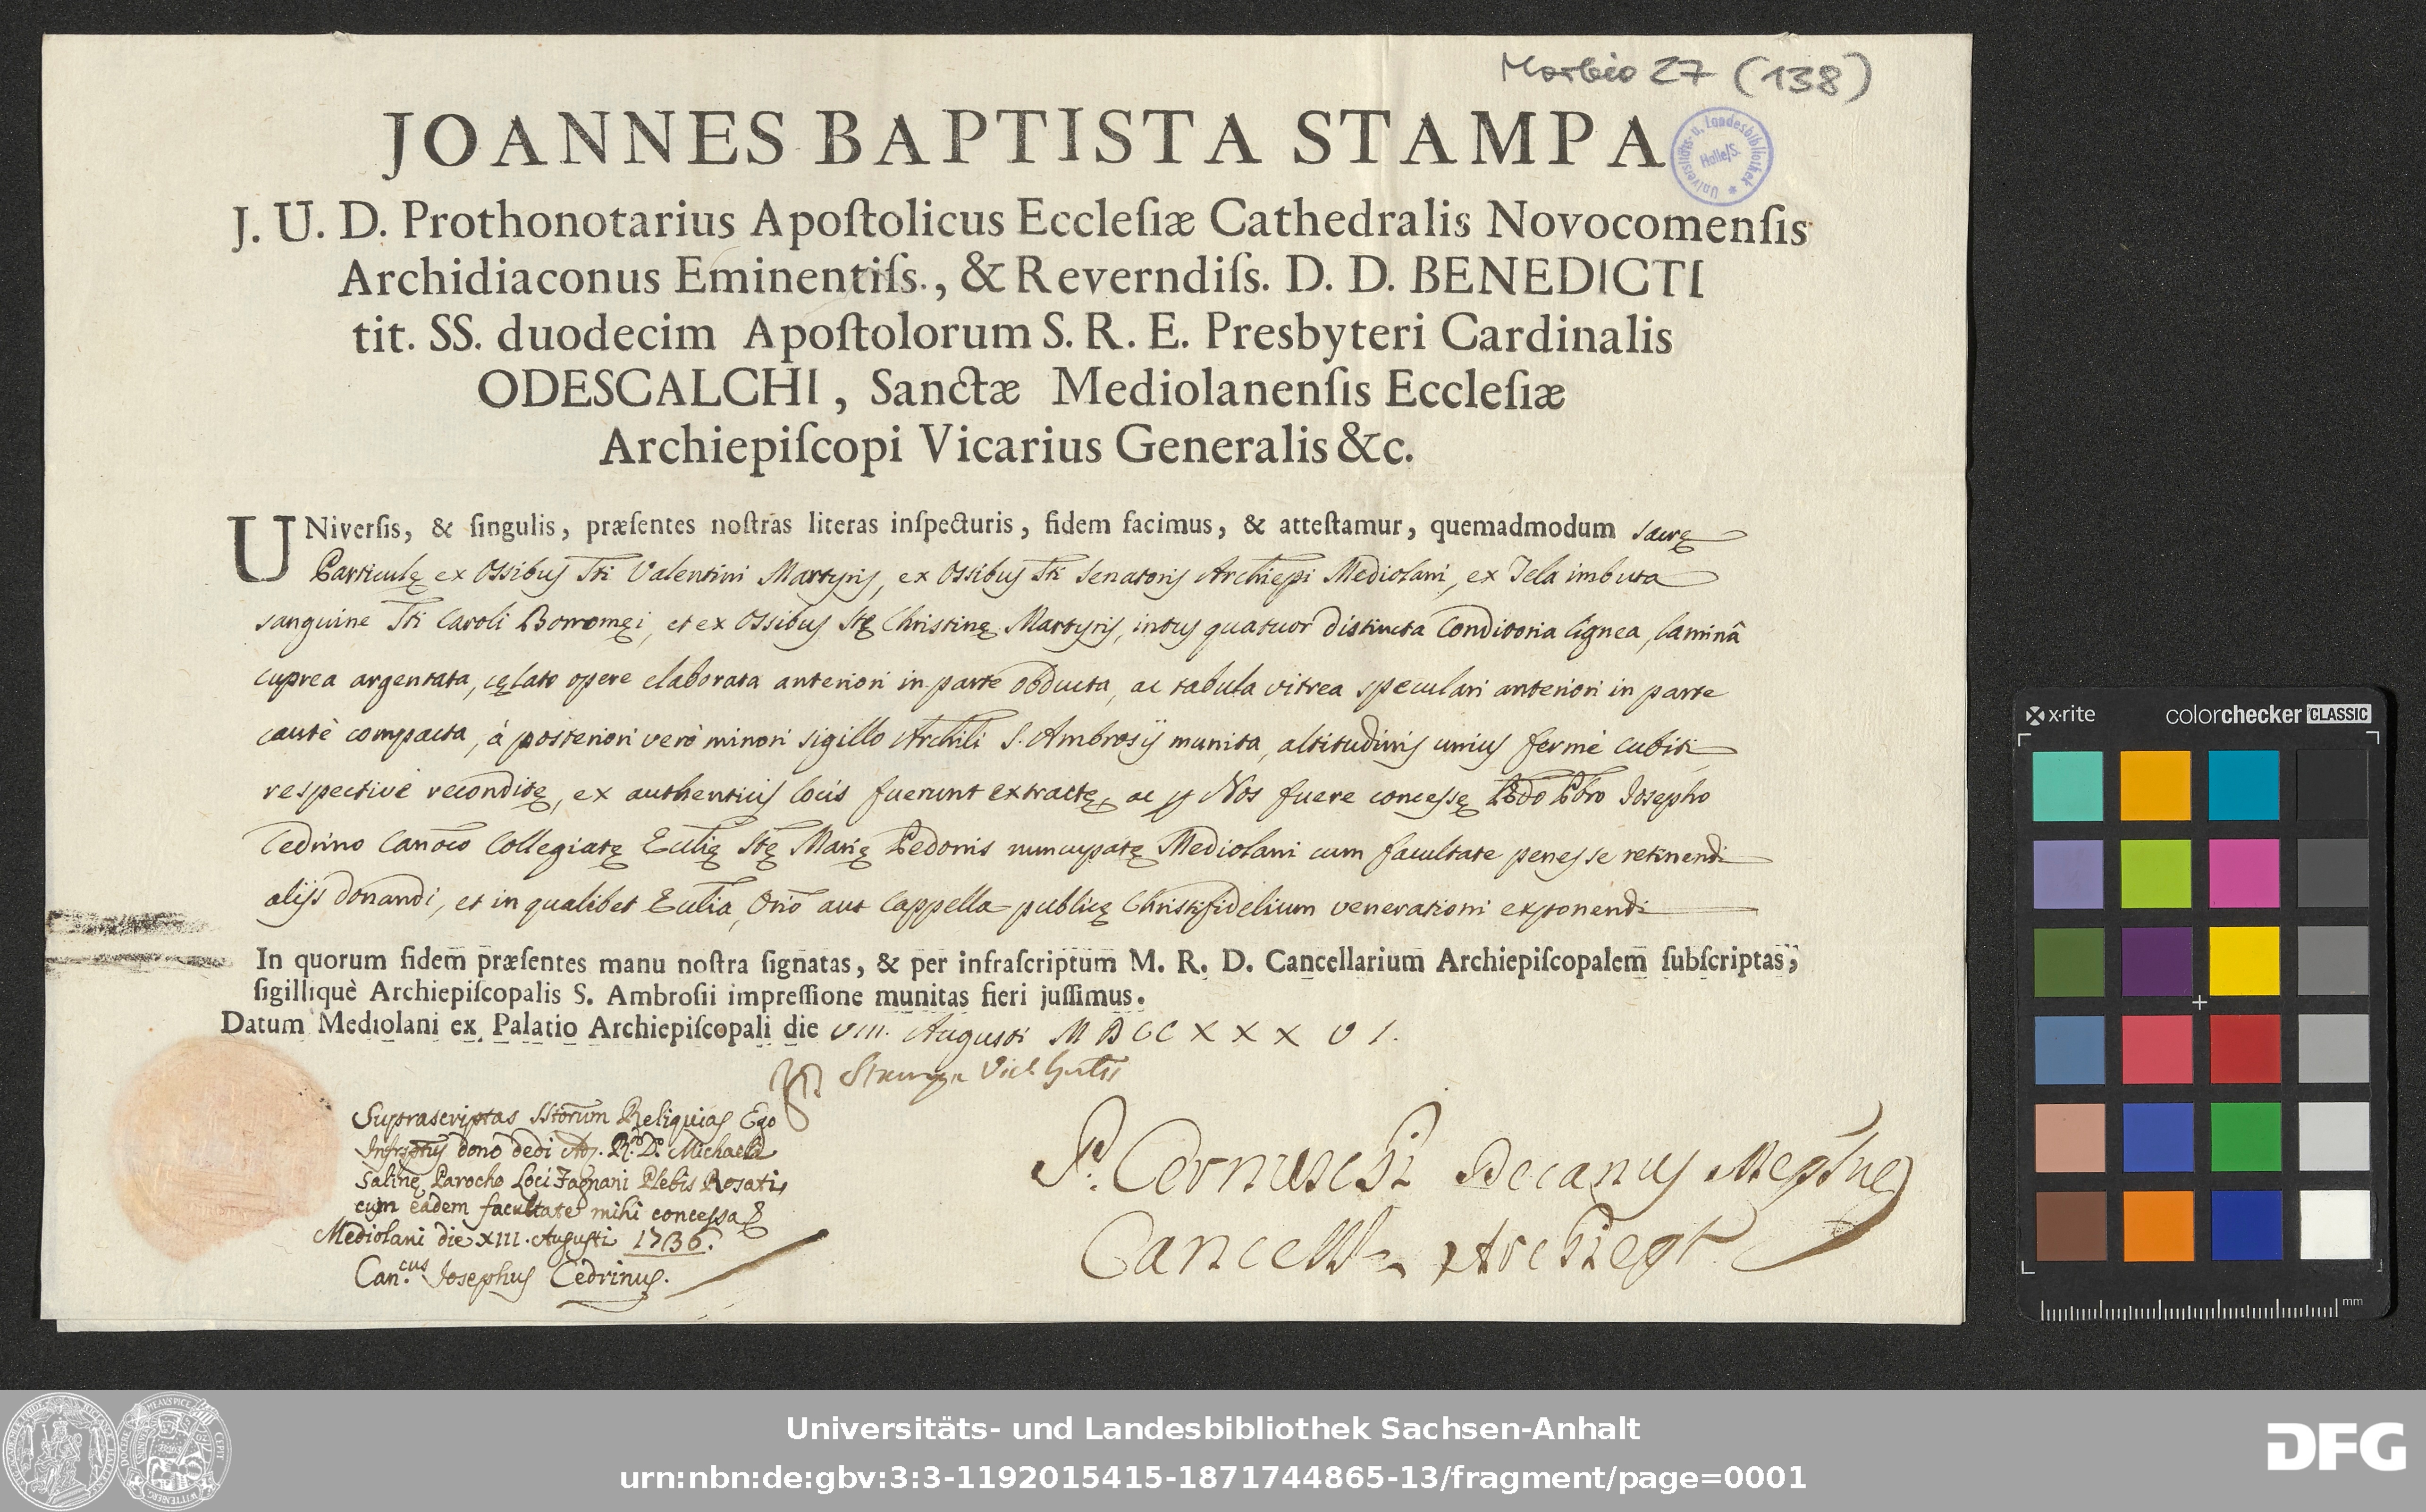 Morbio 27 (138)
JOANNES BAPTISTA STAMPA
Universitäts- u. Landesbibliothek * Halle/S.
J. U. D. Prothonotarius Apoſtolicus Eccleſiæ Cathedralis Novocomenſis
Archidiaconus Eminentiſs., & Reverndiſs. D. D. BENEDICTI
tit. SS. duodecim Apoſtolorum S. R. E. Presbyteri Cardinalis
ODESCALCHI, Sanctæ Mediolanenſis Eccleſiæ
Archiepiſcopi Vicarius Generalis &c.
UNiverſis, & ſingulis, præſentes noſtras literas inſpecturis, fidem facimus, & atteſtamur, quemadmodum sacrę
Particulę ex Ossibus Sti Valentini Martyris, ex Ossibus Sti Senatoris Archiepi Mediolani, ex Tela imbuta
sanguine Sti Caroli Borromęi, et ex Ossibus Stę Christinę Martyris, intus quatuor distincta Conditoria lignea, laminâ
cuprea argentata, cęlato opere elaborata anteriori in parte obducta, ac tabula vitrea speculari anteriori in parte
cautè compacta, à posteriori verò minori sigillo Archili S. Ambrosij munita, altitudinis unius fermè cubiti
respectivè reconditę, ex authenticis locis fuerunt extractę, ac p Nos fuere concessę Rdo Pbro Josepho
Cedrino Canoco Collegiatę Eccłię Stę Marię Pedonis nuncupatę Mediolani cum facultate penes se retinendi
alijs donandi, et in qualibet Eccłia, Orio aut Cappella publicę Christifidelium venerationi exponendi
In quorum fidem præſentes manu noſtra ſignatas, & per infraſcriptum M. R. D. Cancellarium Archiepiſcopalem ſubſcriptas,
ſigilliquè Archiepiſcopalis S. Ambroſii impreſſione munitas fieri juſſimus.
Datum Mediolani ex Palatio Archiepiſcopali die VIII. Augusti MDCCXXXVI.
Stampa Vics Gnlis
Suprascriptas SStorum Reliquias Ego
Infrsptus dono dedi Ad. R. D. Michaeli
Salinę Parocho Loci Fagnani Plebis Rosatis
cum eadem facultate mihi concessa &
Mediolani die XIII. Augusti 1736.
Can.cus Josephus Cedrinus.
P. Cernuschi Decanus
Cancell
x·rite
colorchecker CLASSIC
mm
Universitäts- und Landesbibliothek Sachsen-Anhalt
urn:nbn:de:gbv:3:3-1192015415-1871744865-13/fragment/page=0001
DFG